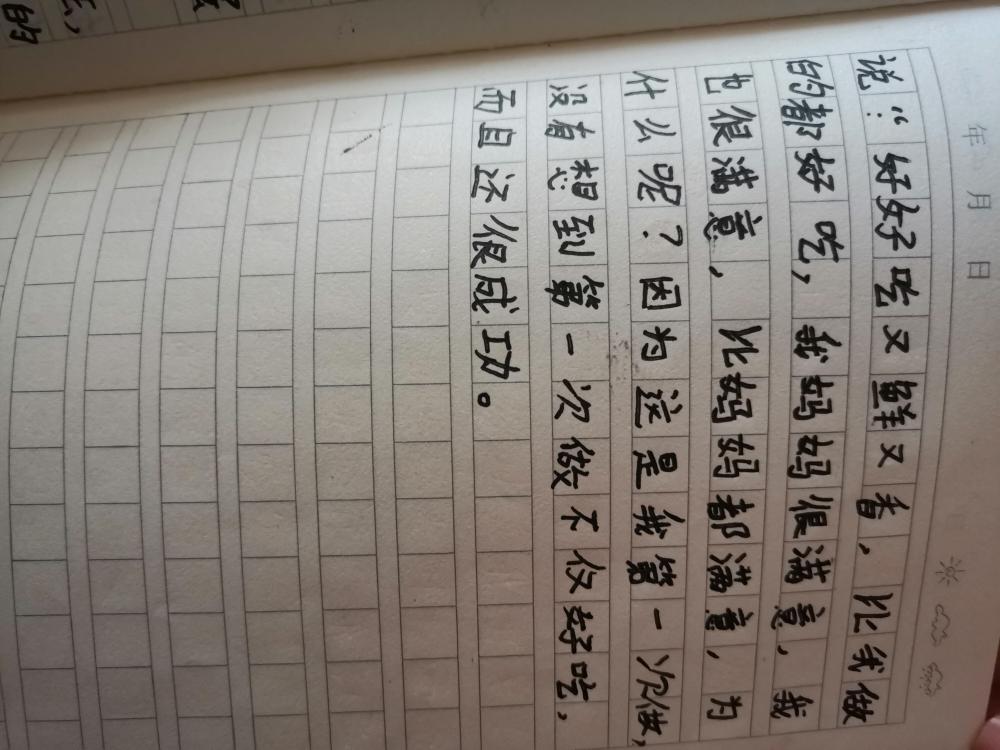 年 月 日
说：“好好吃又鲜又香，比我做
的都好吃，我妈妈很满意，我
也很满意，比妈妈都满意，为
什么呢？因为这是我第一次做，
没有想到第一次做不仅好吃，
而且还很成功。
的